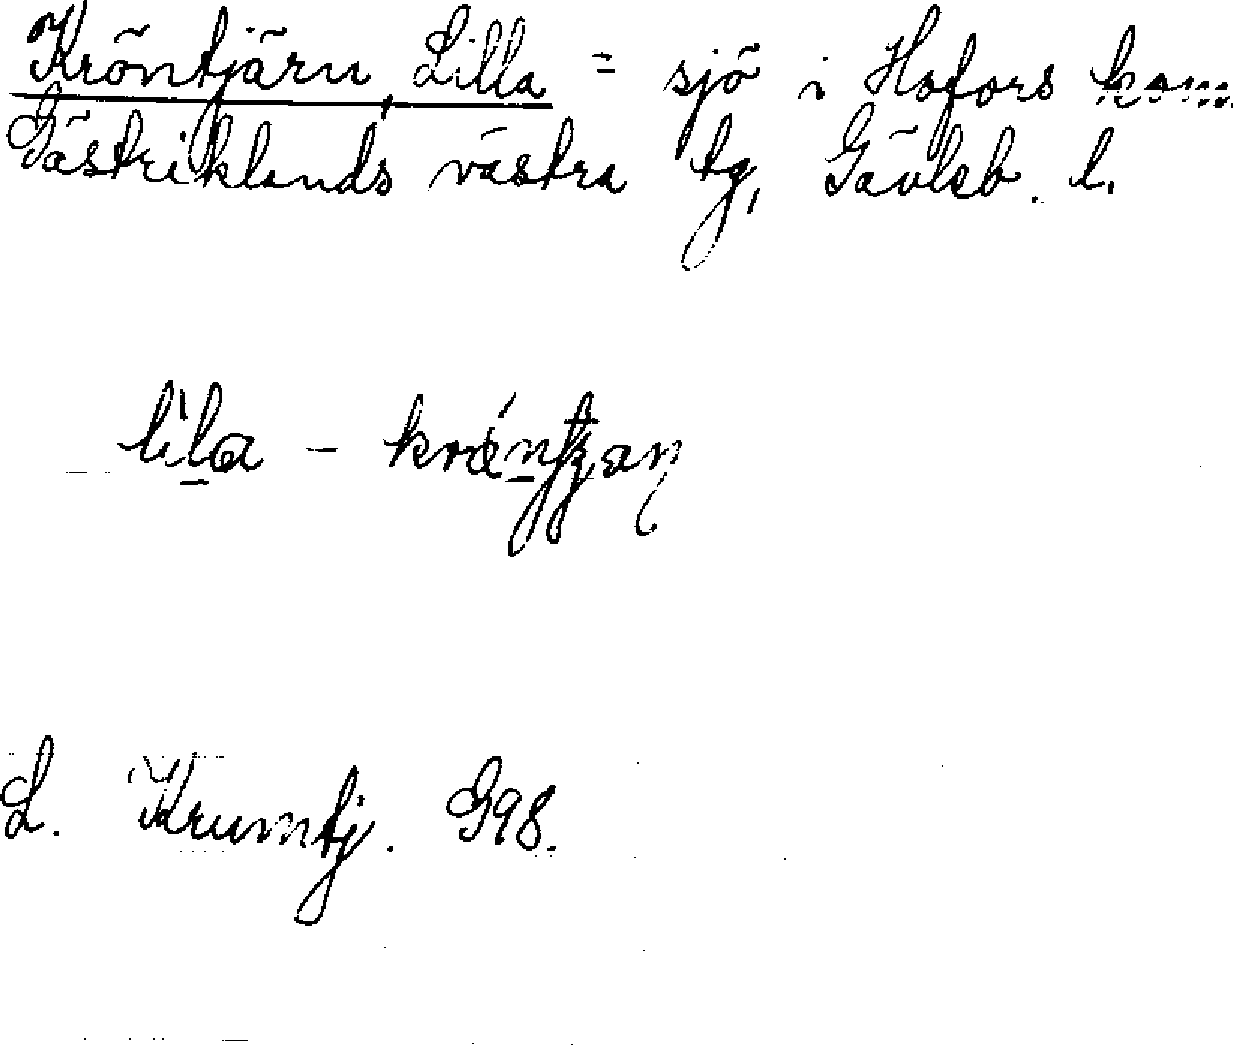 Kröntjärn, Lilla = sjö i Hofors kom
Gästriklands västra tg, Gävleb. l.
lila -
L. Krumtj. G98.